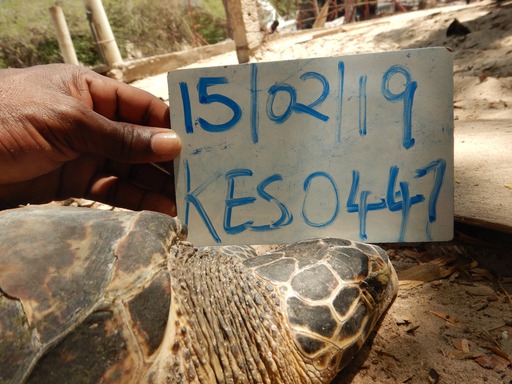 15/02/19
KES0447